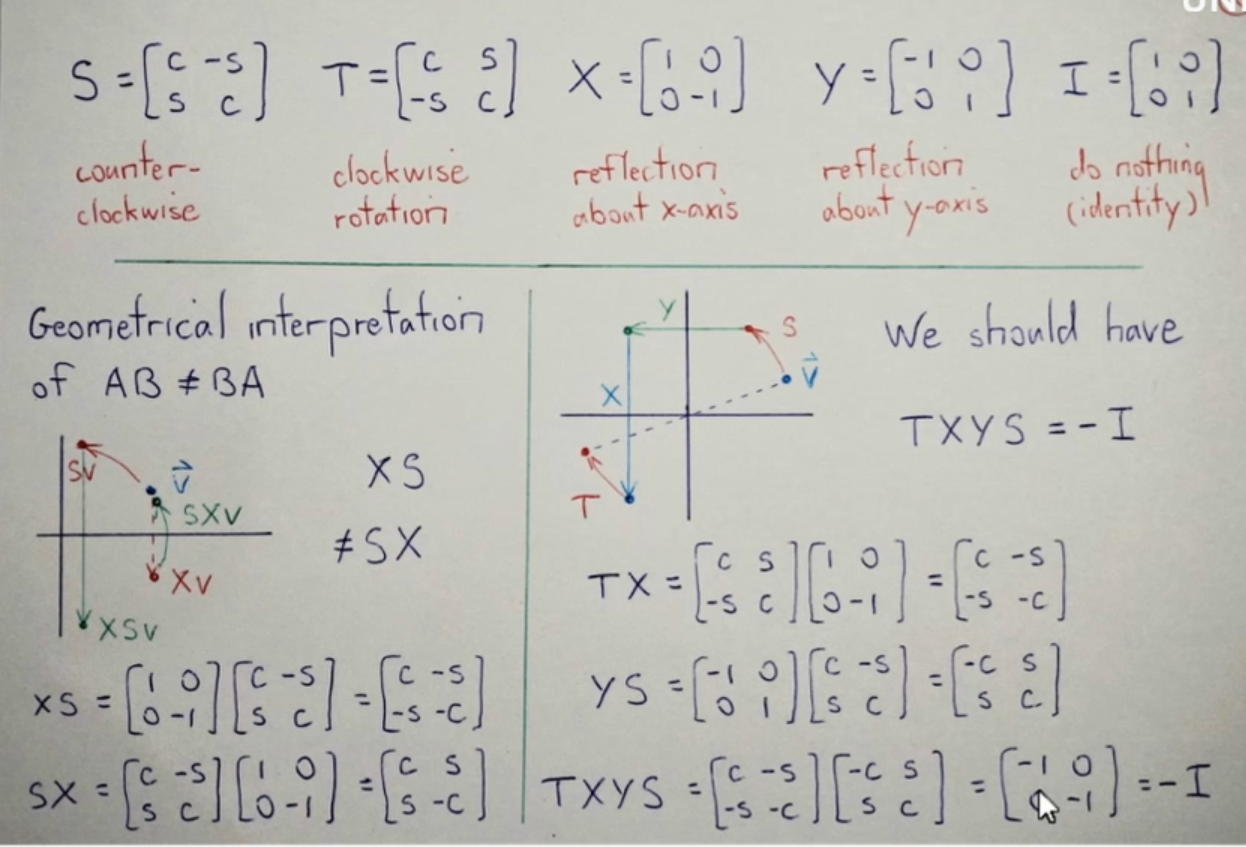 S = [c -s; s c] T = [c s; -s c] X = [1 0; 0 -1] Y = [-1 0; 0 1] I = [1 0; 0 1]
counter-
clockwise
clockwise
rotation
reflection
about x-axis
reflection
about y-axis
do nothing
(identity)
Geometrical interpretation
of AB ≠ BA
SV
v⃗
SXV
XV
XSV
XS
≠ SX
XS = [1 0; 0 -1] [c -s; s c] = [c -s; -s -c]
SX = [c -s; s c] [1 0; 0 -1] = [c s; s -c]
Y
S
v⃗
X
T
We should have
TXYS = -I
TX = [c s; -s c] [1 0; 0 -1] = [c -s; -s -c]
YS = [-1 0; 0 1] [c -s; s c] = [-c s; s c]
TXYS = [c -s; -s -c] [-c s; s c] = [-1 0; 0 -1] = -I